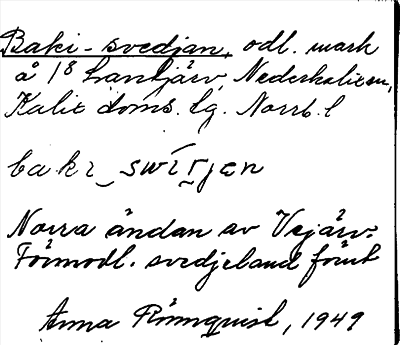 Baki-svedjan, odl. mark
å 1⁸ Lantjärv, Nederkalix sn,
Kalix doms. lg. Norrb. l
baki_swírjen
Norra ändan av Vejärv.
Förmodl. svedjeland förut
Anna Rönnquist, 1949